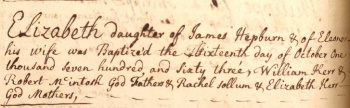 Elizabeth daughter of James Hepburn & of Eleanor
his wife was Baptiz'd the Sixteenth day of October One
thousand seven hundred and Sixty three, William Kerr &
Robert McIntosh God Fathers & Rachel Sollum & Elizabeth Kerr
God Mothers,